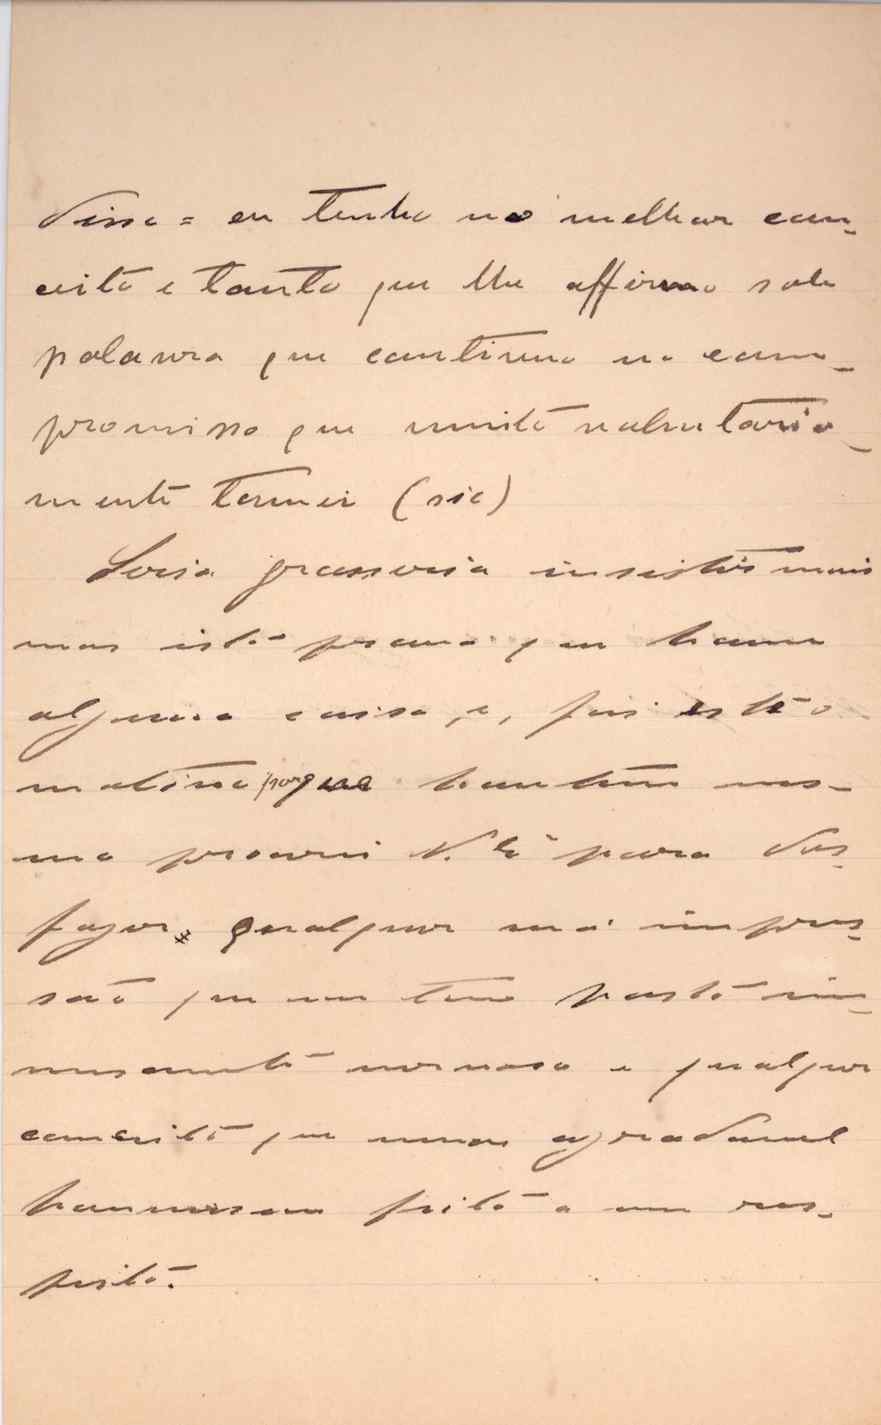 disse = eu tenho no melhor con-
ceito e tanto que lhe affirmo sob
palavra que continuo no com-
promisso que muito voluntaria-
mente tomei (sic)
Seria grosseria insistir mais
mas isto prova que houve
alguma coisa, e, foi este o
motivo porque hontem mes-
mo procurei V. Ex.ª para des-
fazer qualquer má impres-
são que em tem posto im-
mensamente nervoso e qualquer
conceito que menos agradavel
houvessem feito a meu res-
peito.